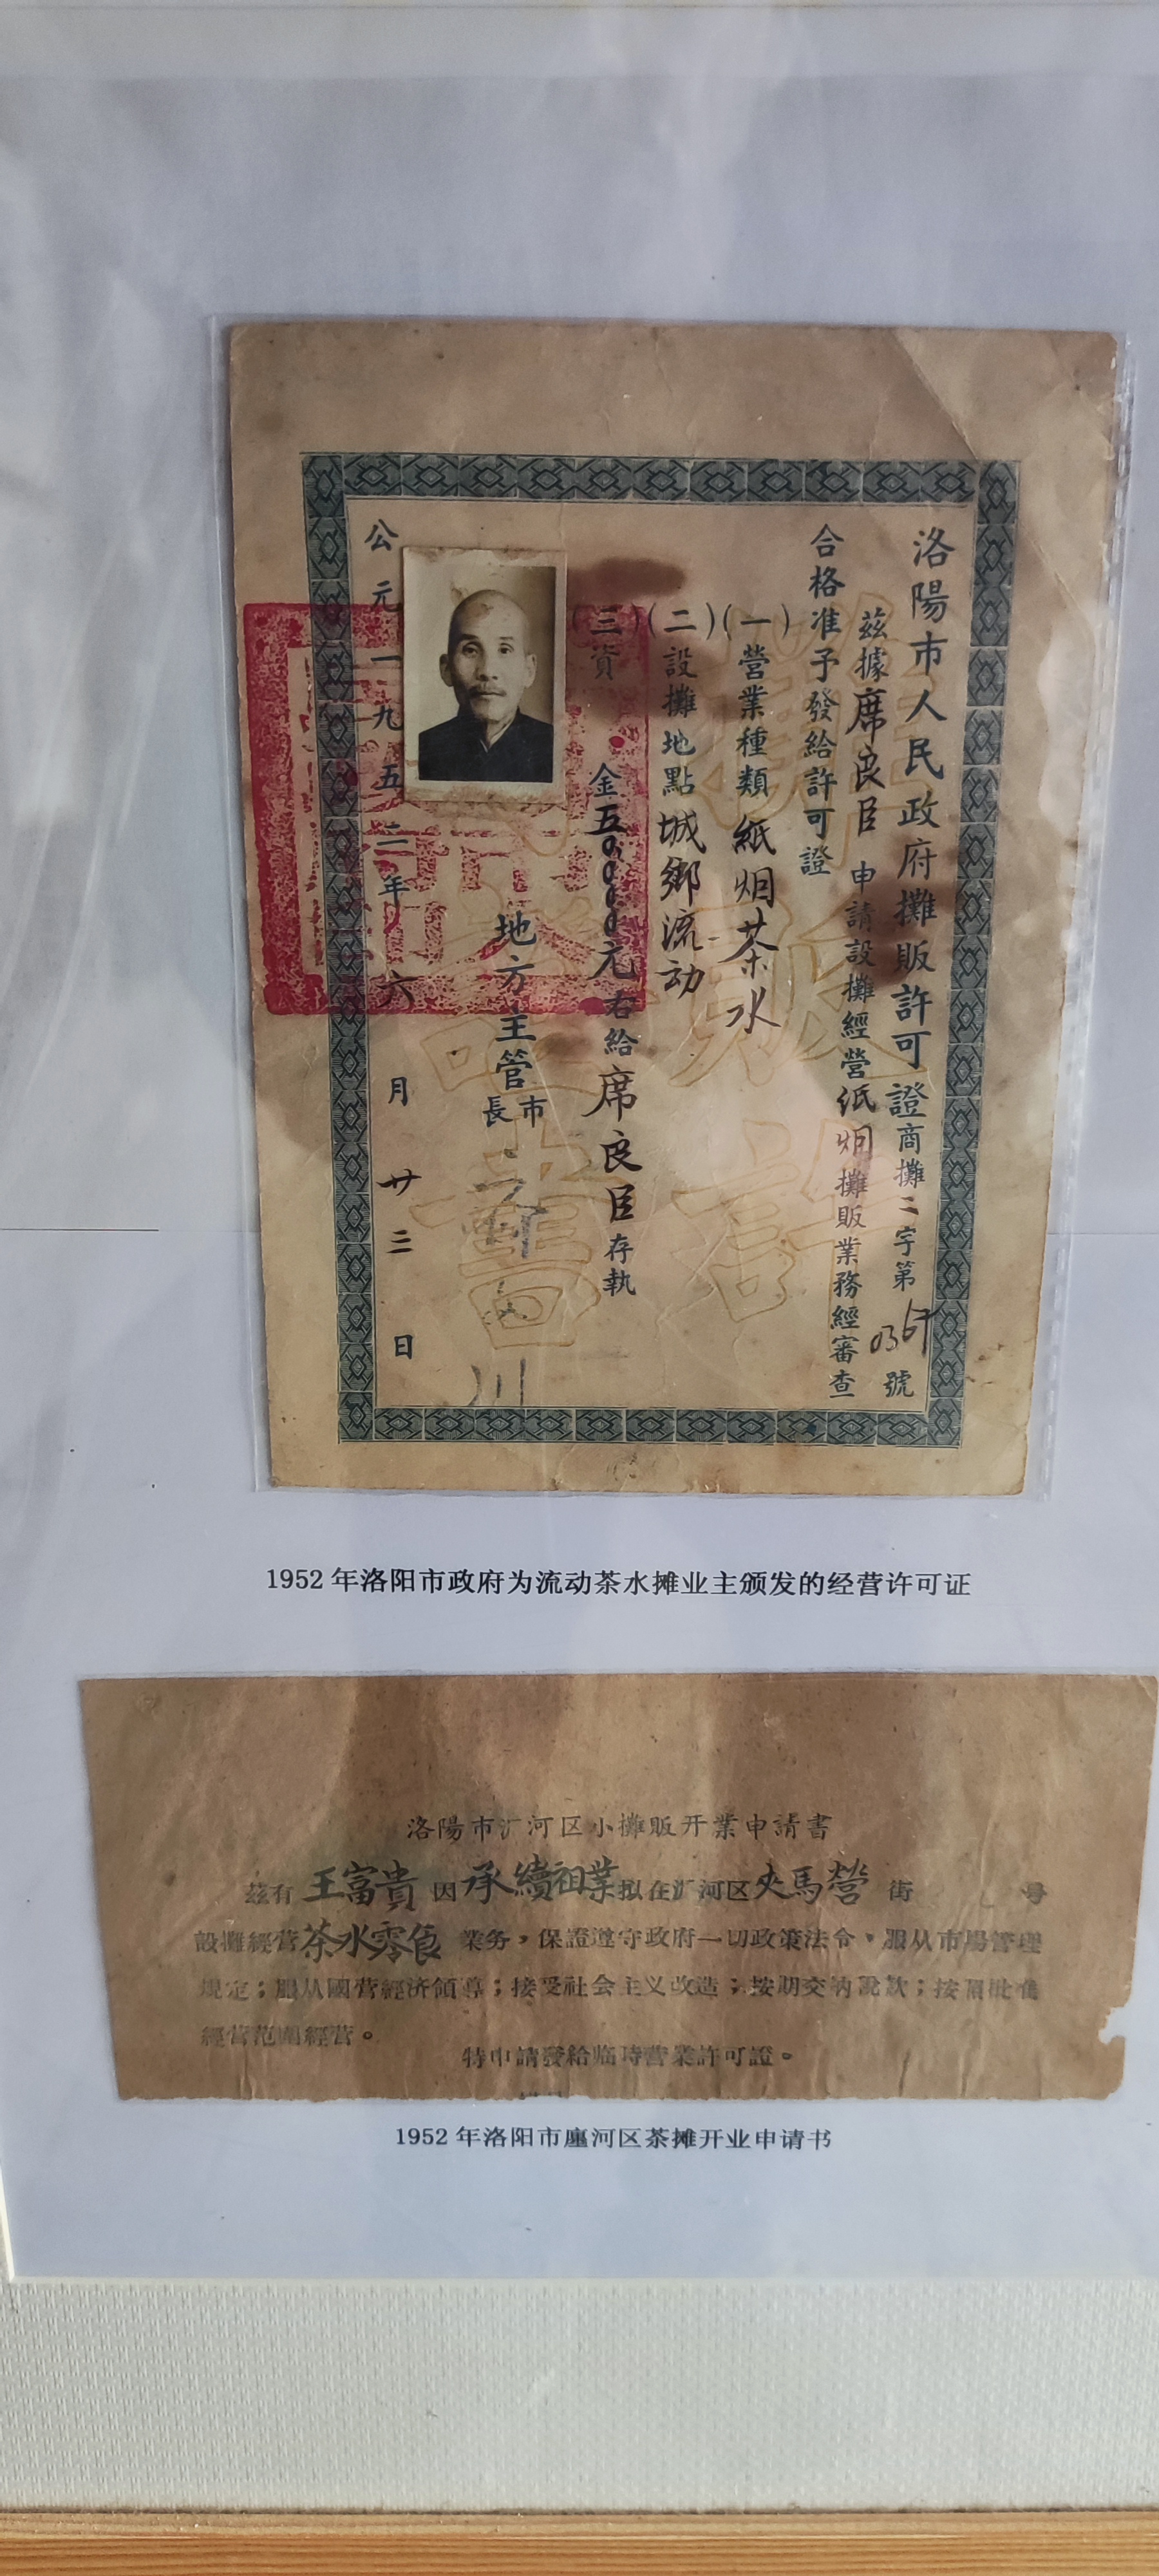 洛陽市人民政府攤販許可證商攤二字第0367號
茲據席良臣申請設攤經營纸烟攤販業務經審查
合格准予發給許可證
(一)營業種類紙烟茶水
(二)設攤地點城鄉流动
(三)資金五0,000元右給席良臣存執
地方主管
市長
公元一九五二年六月廿三日
1952年洛阳市政府为流动茶水摊业主颁发的经营许可证
洛陽市汇河区小攤販开業申請書
茲有王富貴因承續祖業拟在汇河区夾馬營街 号
設攤經营茶水零食業务,保證遵守政府一切政策法令,服从市場管理
規定;服从國营經济領導;接受社会主义改造;按期交納稅款;按照批准
經营范圍經营。
特申請發給临時营業許可證。
1952年洛阳市廛河区茶摊开业申请书